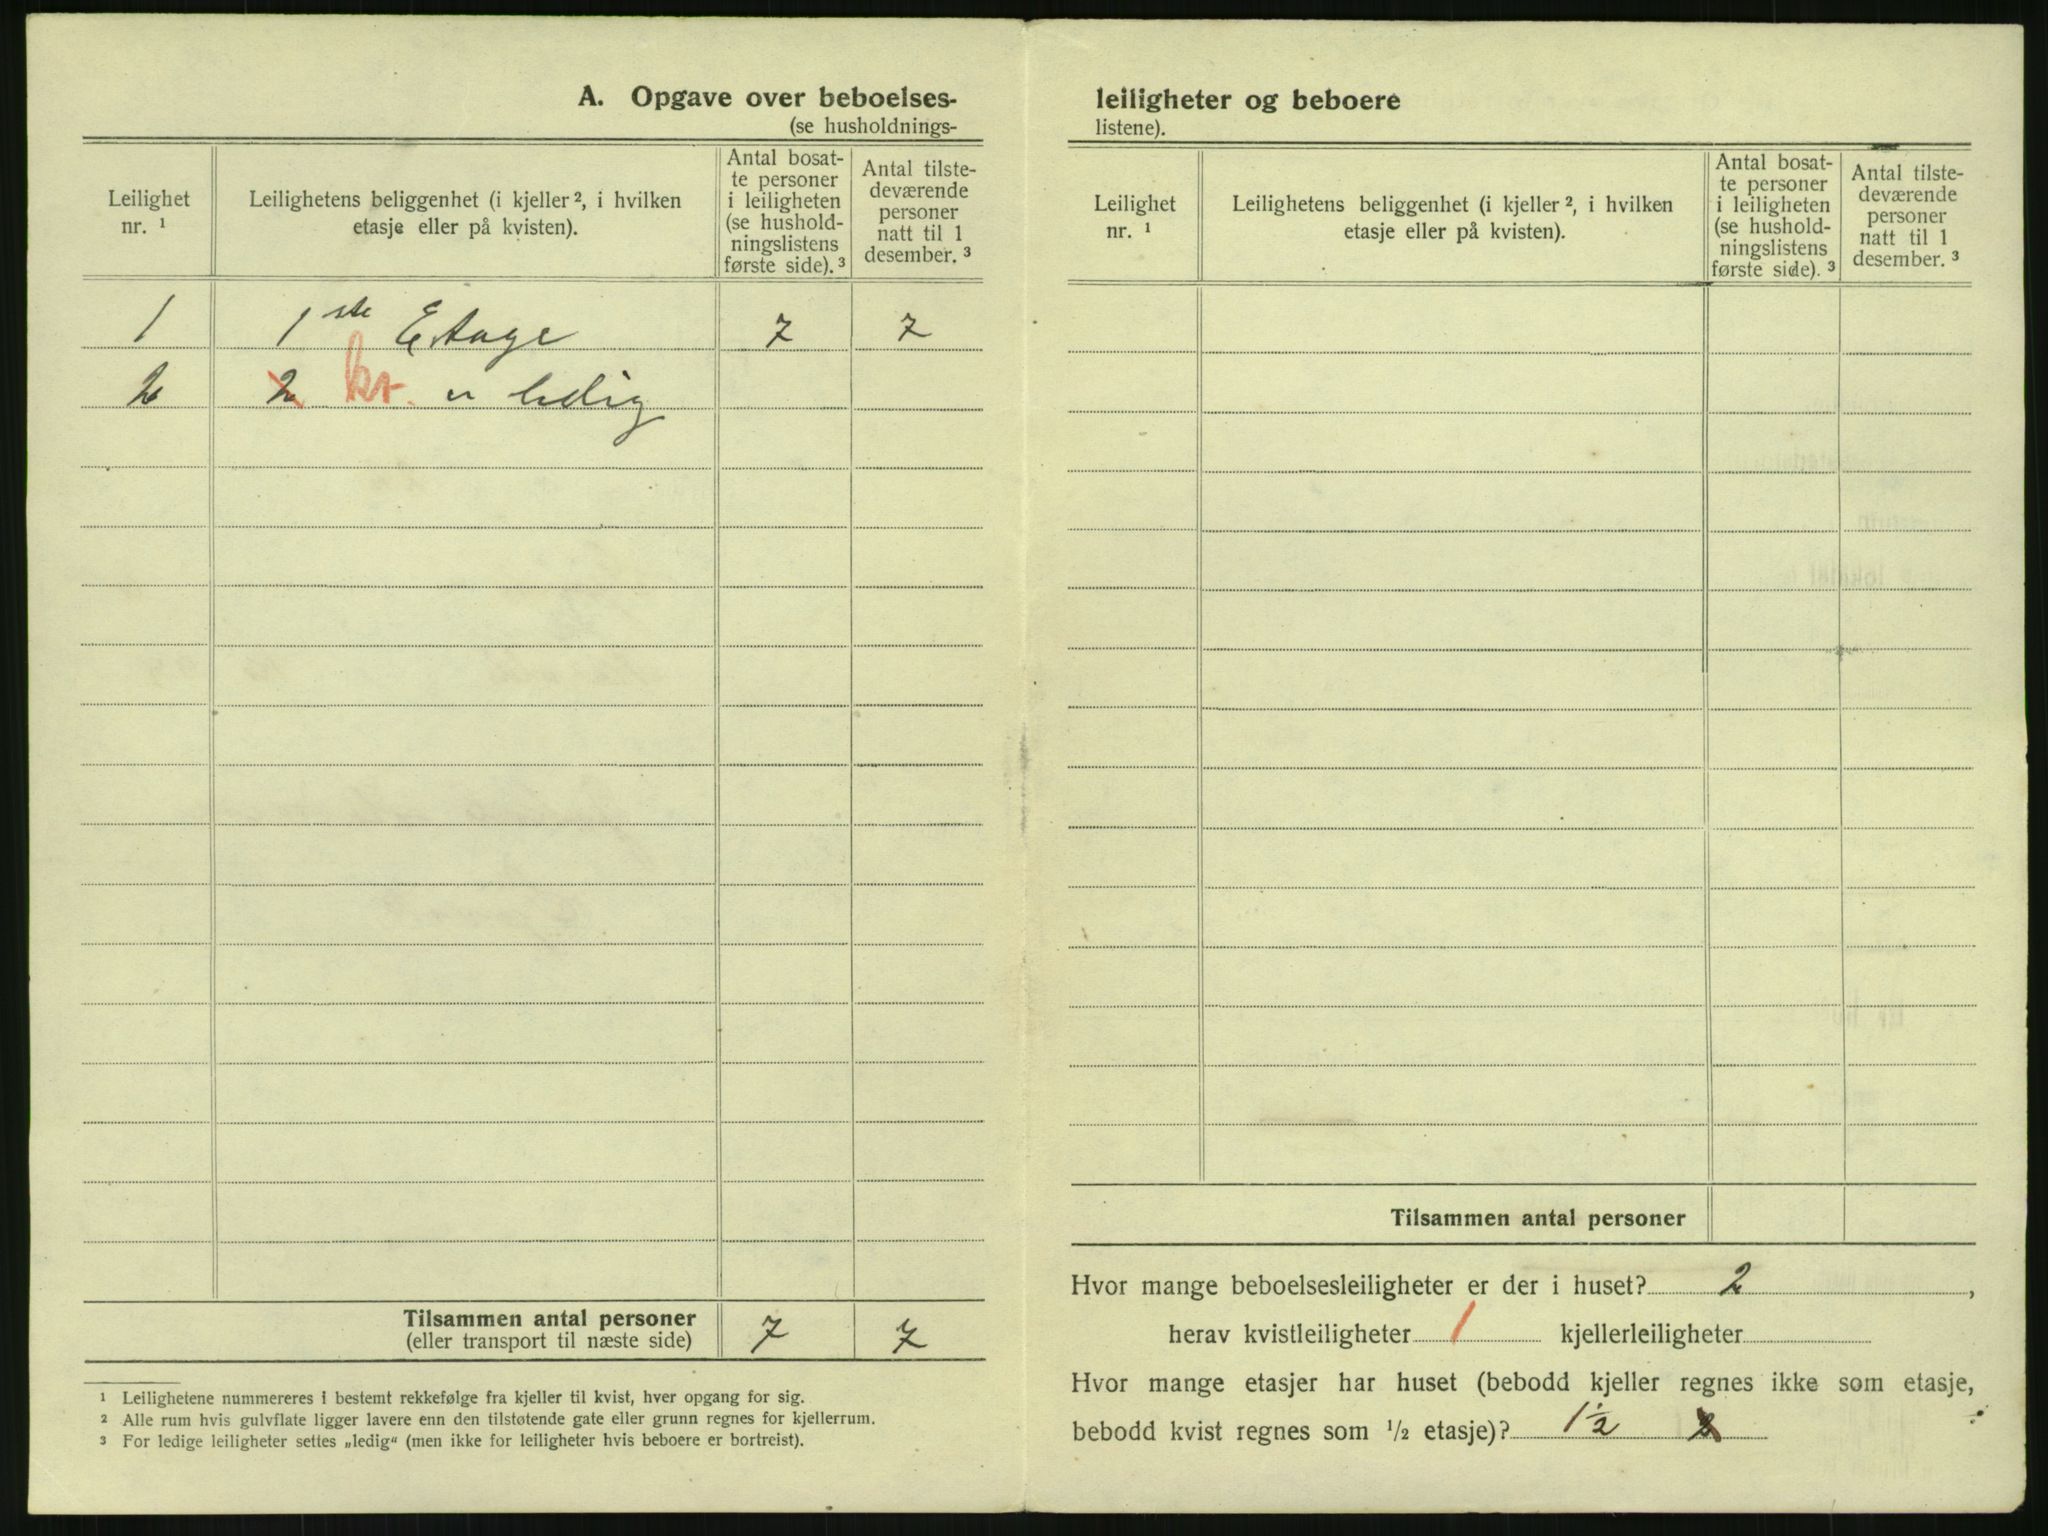 A. Opgave over beboelses-
(se husholdnings-
Leilighet
nr. ¹
Leilighetens beliggenhet (i kjeller ², i hvilken
etasje eller på kvisten).
Antal bosat-
te personer
i leiligheten
(se hushold-
ningslistens
første side). ³
Antal tilste-
deværende
personer
natt til 1
desember. ³
1 1ste Etage 7 7
2 2 kv. er ledig
Tilsammen antal personer
(eller transport til næste side) 7 7
¹ Leilighetene nummereres i bestemt rekkefølge fra kjeller til kvist, hver opgang for sig.
² Alle rum hvis gulvflate ligger lavere enn den tilstøtende gate eller grunn regnes for kjellerrum.
³ For ledige leiligheter settes „ledig“ (men ikke for leiligheter hvis beboere er bortreist).
leiligheter og beboere
listene).
Leilighet
nr. ¹
Leilighetens beliggenhet (i kjeller ², i hvilken
etasje eller på kvisten).
Antal bosat-
te personer
i leiligheten
(se hushold-
ningslistens
første side). ³
Antal tilste-
deværende
personer
natt til 1
desember. ³
Tilsammen antal personer
Hvor mange beboelsesleiligheter er der i huset? 2,
herav kvistleiligheter 1 kjellerleiligheter
Hvor mange etasjer har huset (bebodd kjeller regnes ikke som etasje,
bebodd kvist regnes som ¹/₂ etasje)? 1½ 2